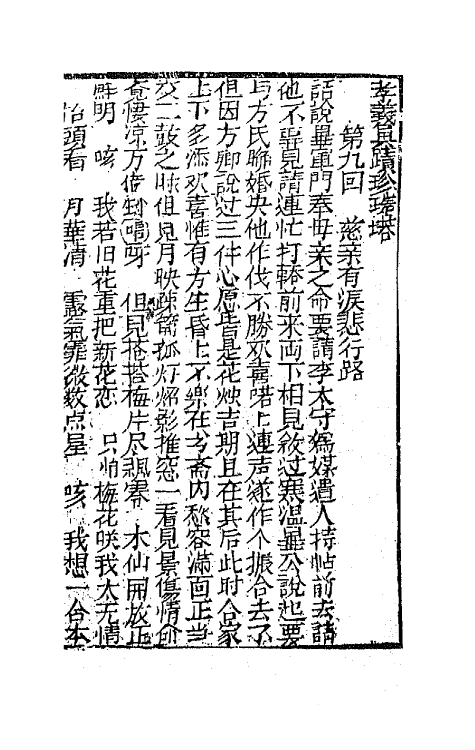 孝義真蹟珍珠塔
第九回 慈亲有淚悲行路
話說畢軍門奉毋亲之命要請李太守爲媒遣人持帖前去請
他不喜見請連忙打轎前来両下相見敘过寒温畢公說起要
与方氏聨婚央他作伐不勝欢喜喏上連声遂作个撮合去了
但因方卿說过三件心愿皆是花烛吉期且在其后此时合家
上下多添欢喜惟有方生昏上不樂在书斋内愁容滿面正当
交二鼓之时但見月映疎窗孤灯焰影推窓一看見景傷情愈
覚悽凉万倍 (唱)呀 但見 搭梅片尽飄寒 水仙開放正
鮮明 咳 我若旧花重把新花恋 只怕梅花咲我太无情
抬頭看 月華清 露氣霏微数点星 咳 我想一台本